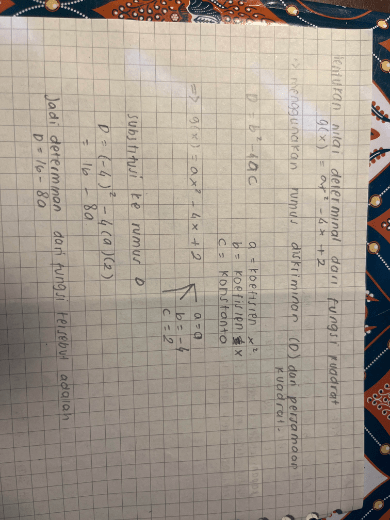 nilai determinal dari fungsi kuadrat
g(x) = ax² - 4x + 2
menggunakan rumus diskriminan (D) dari persamaan
kuadrat
D = b² 4ac
a = koefisien x²
b = koefisien x
c = konstanta
=> g(x) = ax² - 4x + 2
a = a
b = -4
c = 2
Substitusi ke rumus D
D = (-4)² - 4(a)(2)
= 16 - 8a
Jadi determinan dari fungsi tersebut adalah
D = 16 - 8a